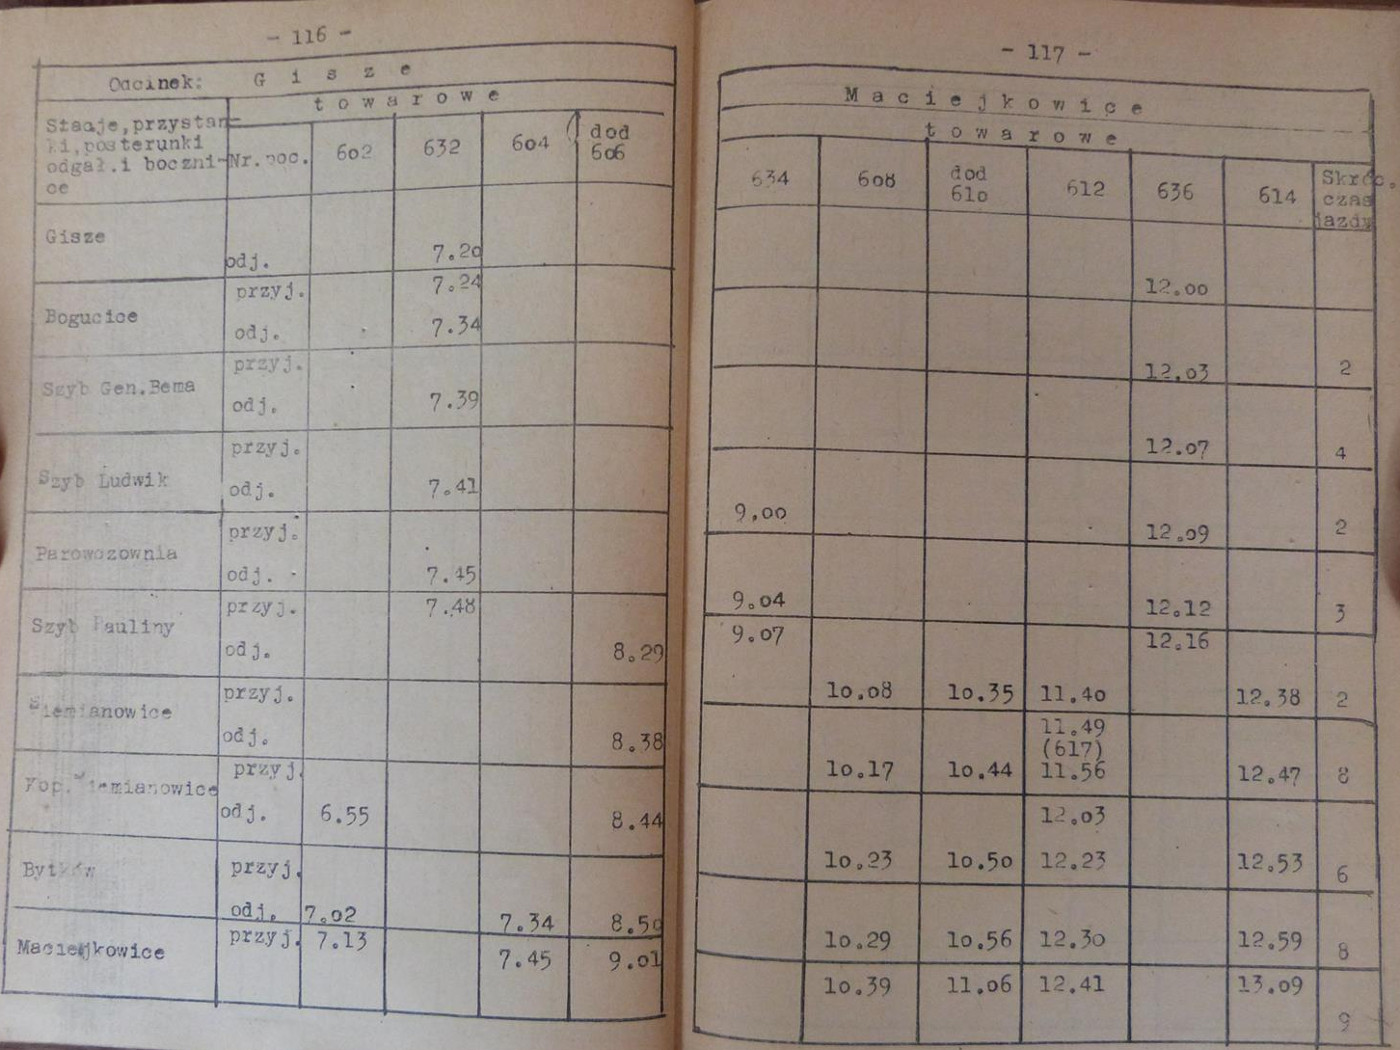 - 116 -
Odcinek: G i s z e
t o w a r o w e
Stacje,przystan-
ki,posterunki
odgał.i boczni-
ce
Nr.poc. 602 632 604 dod
606
Gisze
odj. 7.20
przyj. 7.24
Bogucice
odj. 7.34
przyj.
Szyb Gen.Bema
odj. 7.39
przyj.
Szyb Ludwik
odj. 7.41
przyj.
Parowozownia
odj. 7.45
przyj. 7.48
Szyb Pauliny
odj. 8.29
przyj.
Siemianowice
odj. 8.38
przyj.
Kop.Siemianowice
odj. 6.55 8.44
Bytków przyj.
odj. 7.02 7.34 8.50
Maciejkowice przyj. 7.13 7.45 9.01
- 117 -
M a c i e j k o w i c e
t o w a r o w e
634 608 dod
610 612 636 614 Skróc.
czas
jazdy
12.00
12.03 2
12.07 4
9.00 12.09 2
9.04 12.12 3
9.07 12.16
10.08 10.35 11.40 12.38 2
11.49
(617)
10.17 10.44 11.56 12.47 8
12.03
10.23 10.50 12.23 12.53 6
10.29 10.56 12.30 12.59 8
10.39 11.06 12.41 13.09
9